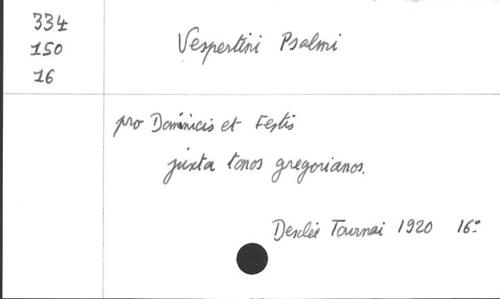 334
150
16
Vespertini Psalmi
pro Dominicis et Festis
juxta tonos gregorianos.
Desclée Tournai 1920 16°